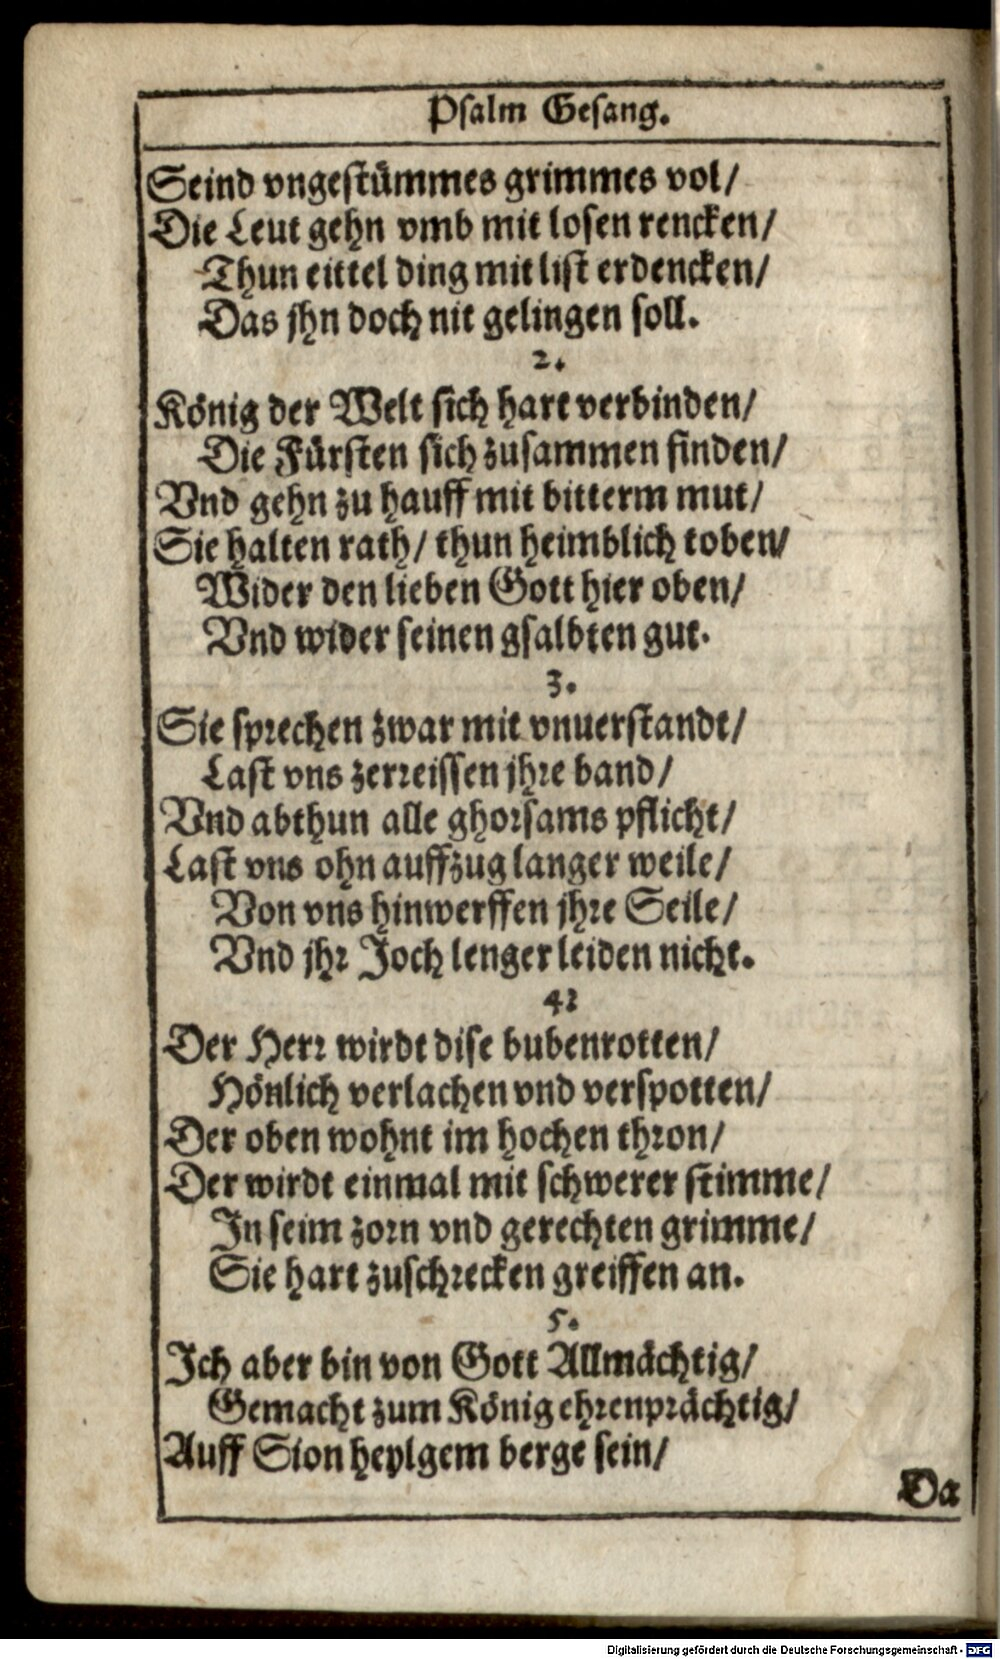 Psalm Gesang.
Seind vngestümmes grimmes vol/
Die Leut gehn vmb mit losen rencken/
Thun eittel ding mit list erdencken/
Das jhn doch nit gelingen soll.
2.
König der Welt sich hart verbinden/
Die Fürsten sich zusammen finden/
Vnd gehn zu hauff mit bitterm mut/
Sie halten rath/ thun heimblich toben/
Wider den lieben Gott hier oben/
Vnd wider seinen gsalbten gut.
3.
Sie sprechen zwar mit vnuerstandt/
Last vns zerreissen jhre band/
Vnd abthun alle ghorsams pflicht/
Last vns ohn auffzug langer weile/
Von vns hinwerffen jhre Seile/
Vnd jhr Joch lenger leiden nicht.
4.
Der Herr wirdt dise bubenrotten/
Hönlich verlachen vnd verspotten/
Der oben wohnt im hochen thron/
Der wirdt einmal mit schwerer stimme/
In seim zorn vnd gerechten grimme/
Sie hart zuschrecken greiffen an.
5.
Ich aber bin von Gott Allmächtig/
Gemacht zum König ehrenprächtig/
Auff Sion heylgem berge sein/
Da
Digitalisierung gefördert durch die Deutsche Forschungsgemeinschaft - DFG